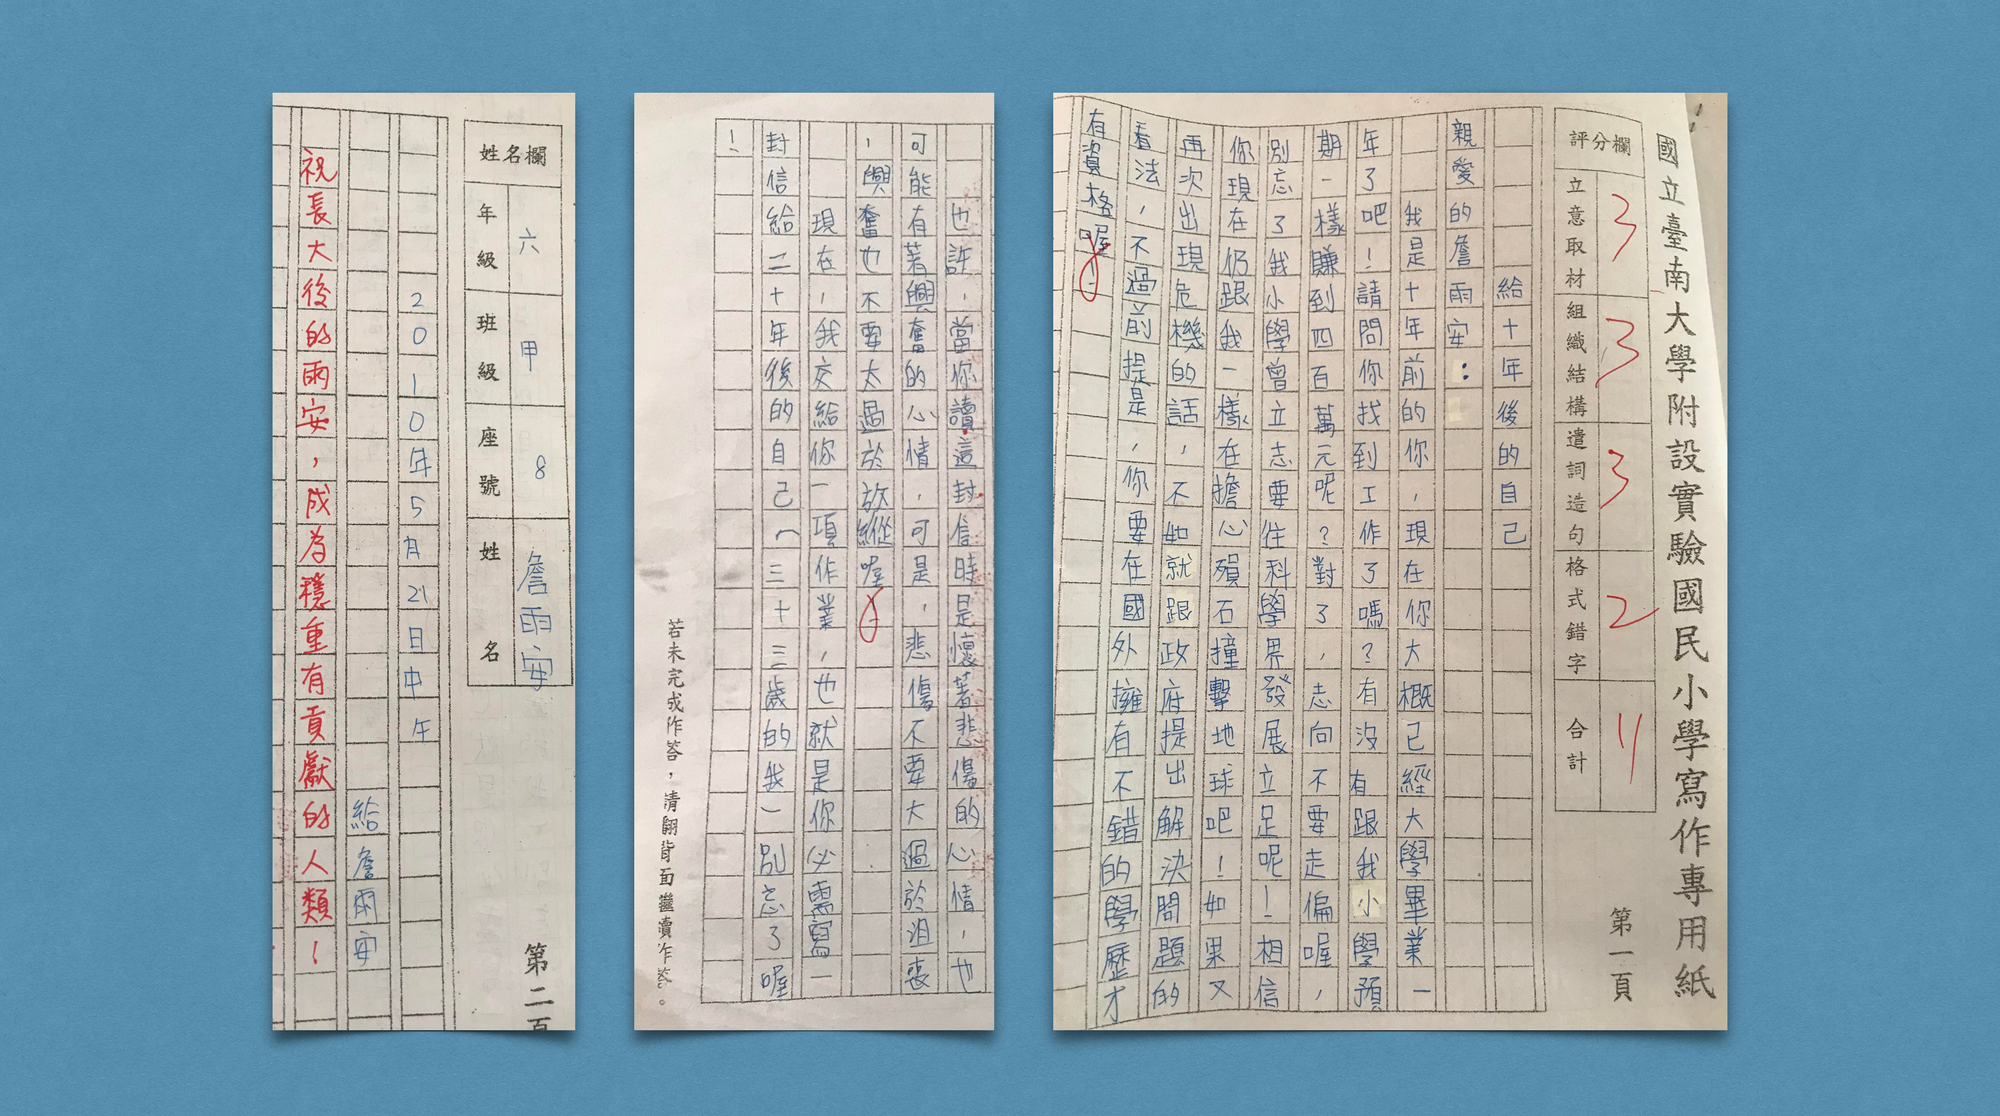 國立臺南大學附設實驗國民小學寫作專用紙
第一頁
評分欄
立意取材 3
組織結構 3
遣詞造句 3
格式錯字 2
合計 11
給十年後的自己
親愛的詹雨安：
我是十年前的你，現在你大概已經大學畢業一
年了吧！請問你找到工作了嗎？有沒有跟我小學預
期一樣賺到四百萬元呢？對了，志向不要走偏喔，
別忘了我小學曾立志要往科學界發展立足呢！相信
你現在仍跟我一樣在擔心殞石撞擊地球吧！如果又
再次出現危機的話，不如就跟政府提出解決問題的
看法，不過前提是，你要在國外擁有不錯的學歷才
有資格喔！
也許，當你讀這封信時是懷著悲傷的心情，也
可能有著興奮的心情，可是，悲傷不要大過於沮喪
，興奮也不要太過於放縱喔！
現在，我交給你一項作業，也就是你必需寫一
封信給二十年後的自己（三十三歲的我）別忘了喔
！
若未完成作答，請翻背面繼續作答。
姓名欄
年級 六
班級 甲
座號 8
姓名 詹雨安
第二頁
2010年5月21日中午
給詹雨安
祝長大後的雨安，成為穩重有貢獻的人類！